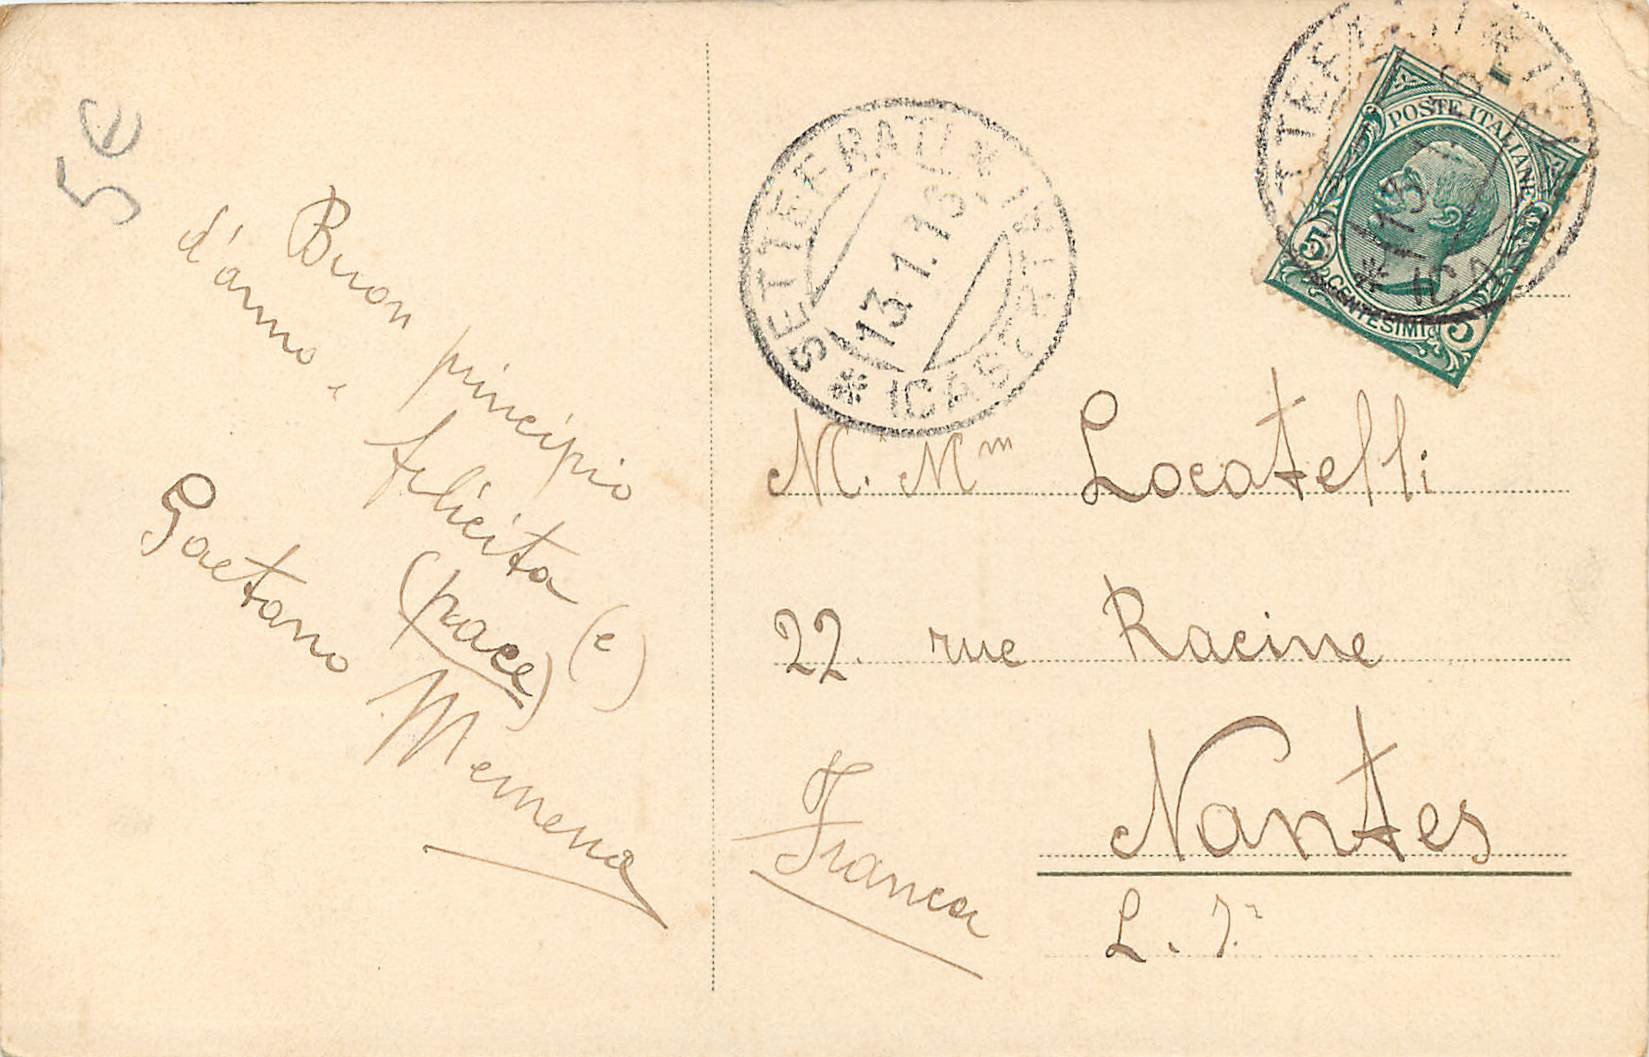 5€
Buon principio
d'anno,
felicita (e)
(pace)
Gaetano Memena
SETTEFRATI * (CASERTA) *
13.1.13
POSTE ITALIANE
5 CENTESIMI 5
M. Mm Locatelli
22. rue Racine
Nantes
Franca
L. Ire